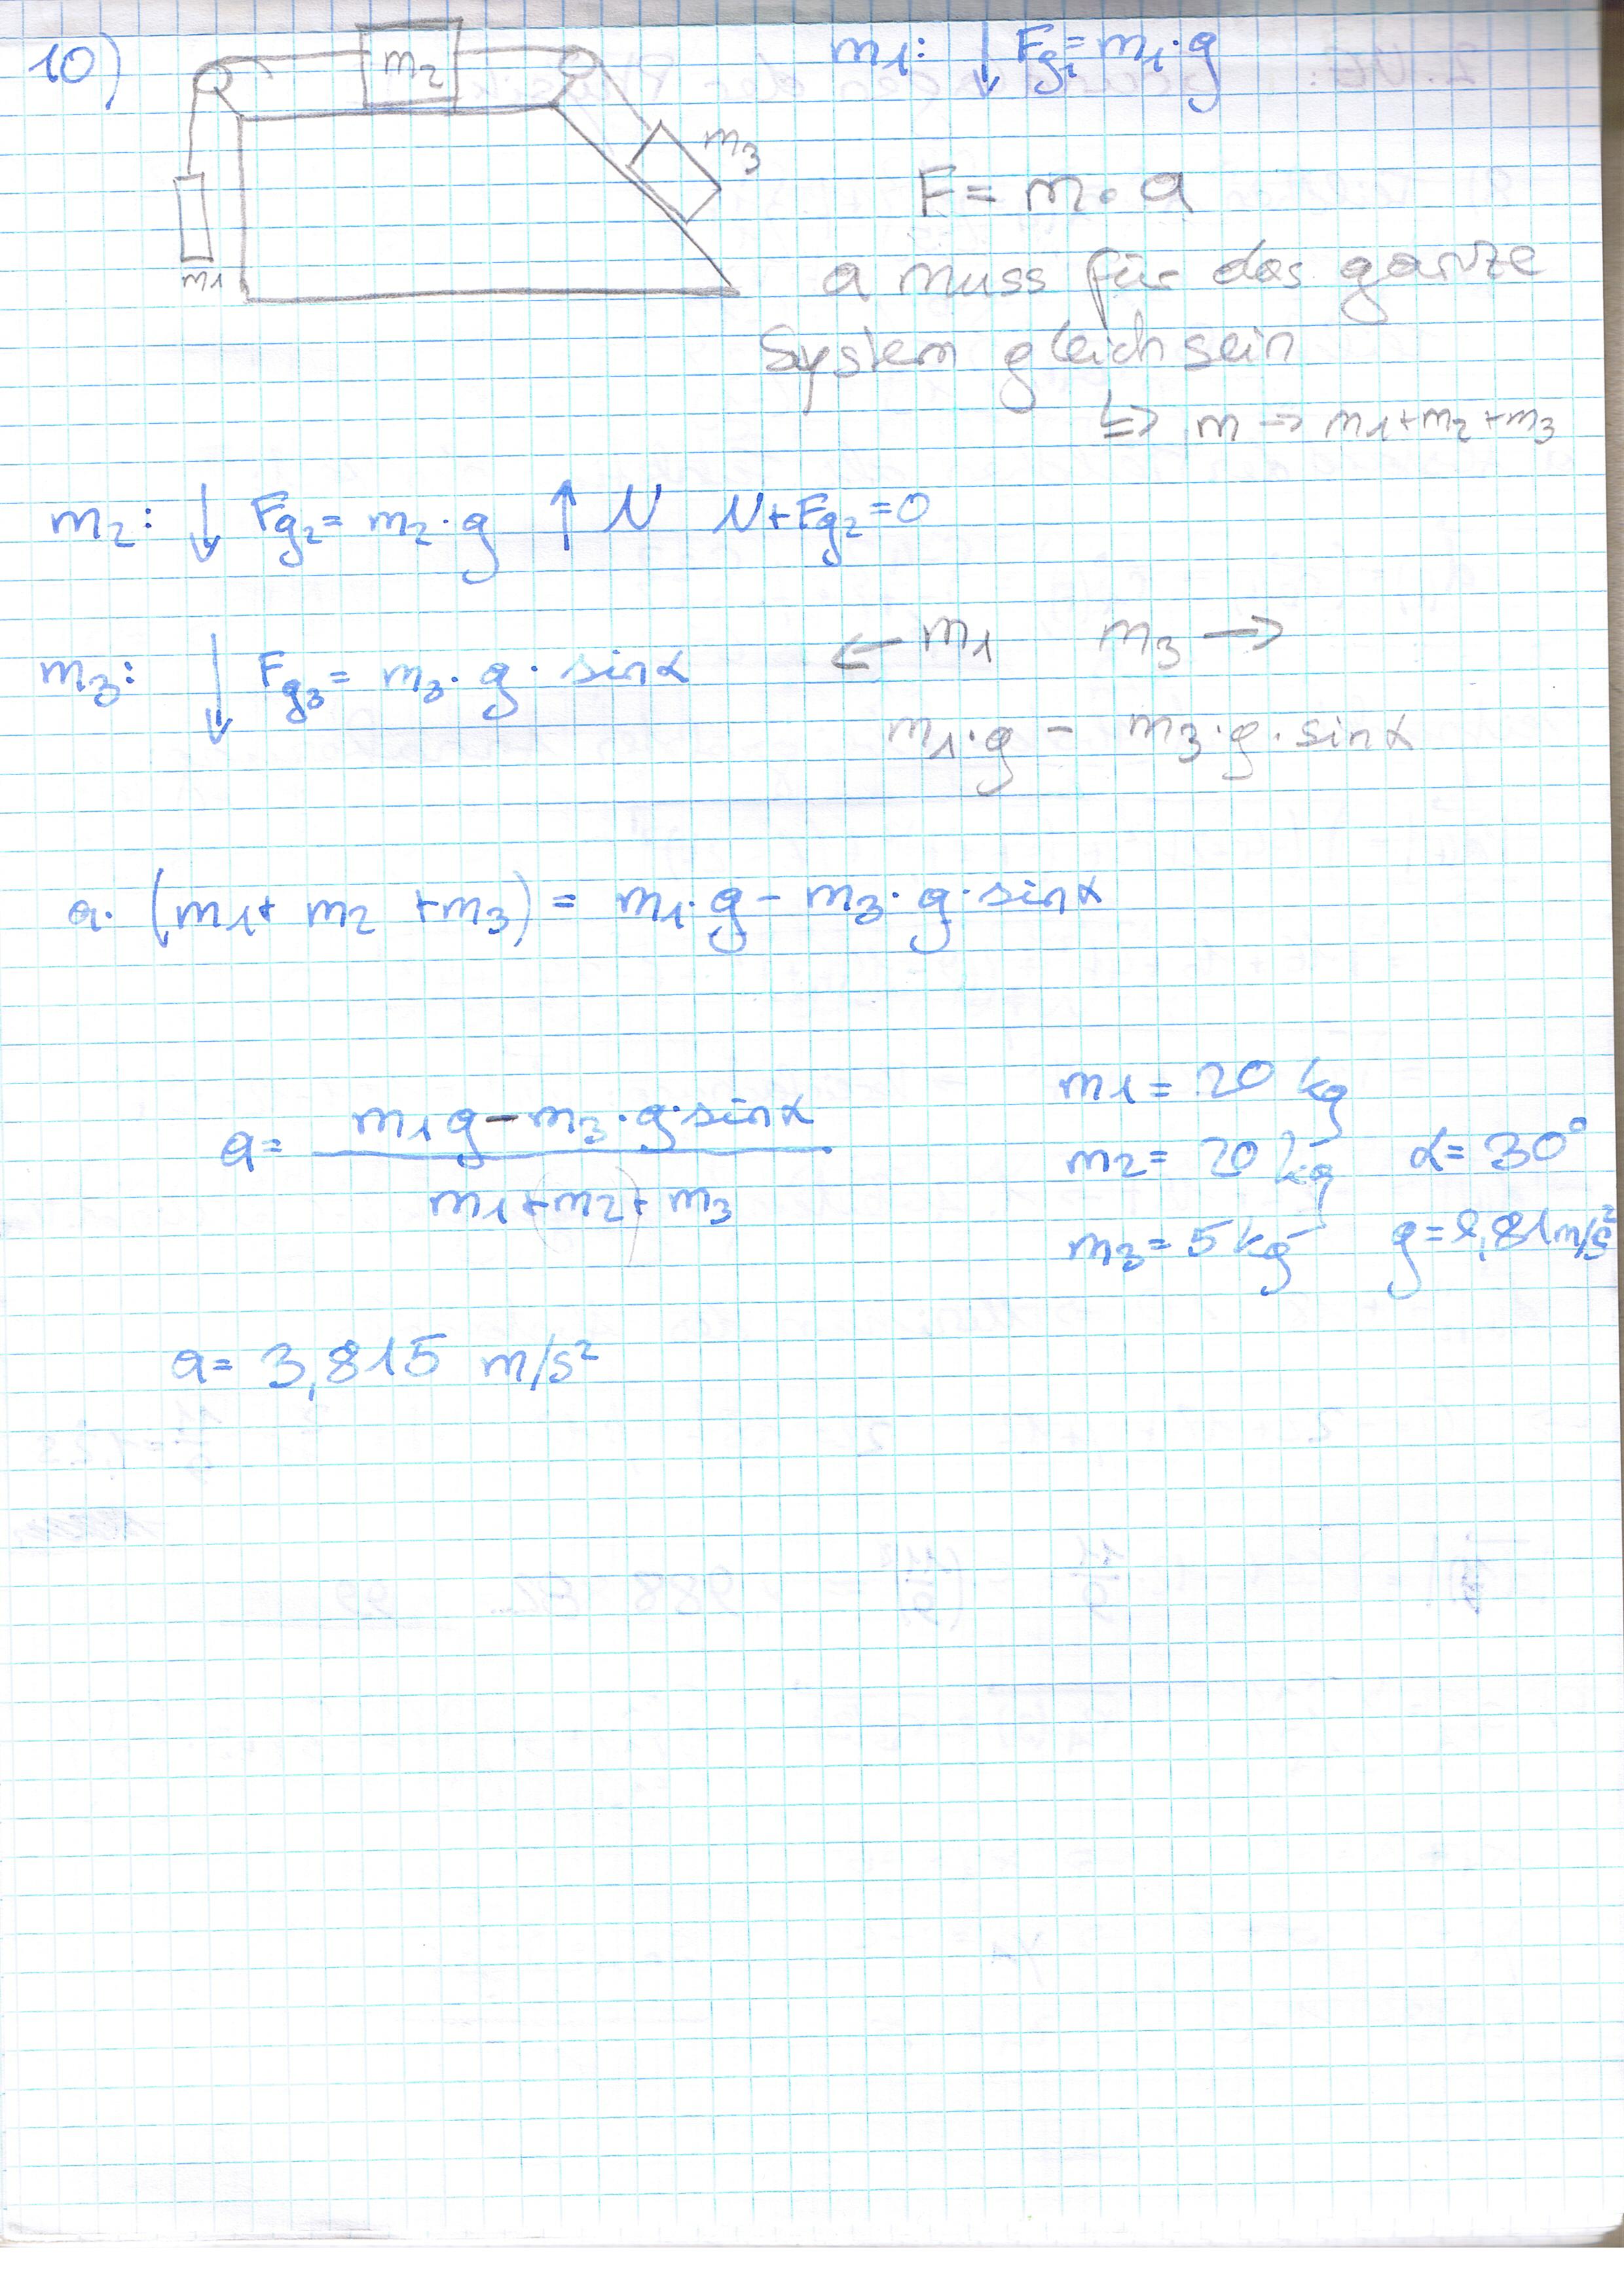 10)
m2
m3
m1
m1: ↓ Fg1 = m1·g
F = m·a
a muss für das ganze
System gleich sein
↳> m → m1+m2+m3
m2: ↓ Fg2 = m2·g ↑ N N+Fg2=0
m3: ↓ Fg3 = m3·g·sinα
← m1 m3 →
m1·g - m3·g·sinα
a·(m1+m2+m3) = m1·g - m3·g·sinα
a = (m1g - m3·g·sinα) / (m1+(m2)+m3)
m1 = 20 kg
m2 = 20 kg α = 30°
m3 = 5 kg g = 9,81 m/s²
a = 3,815 m/s²